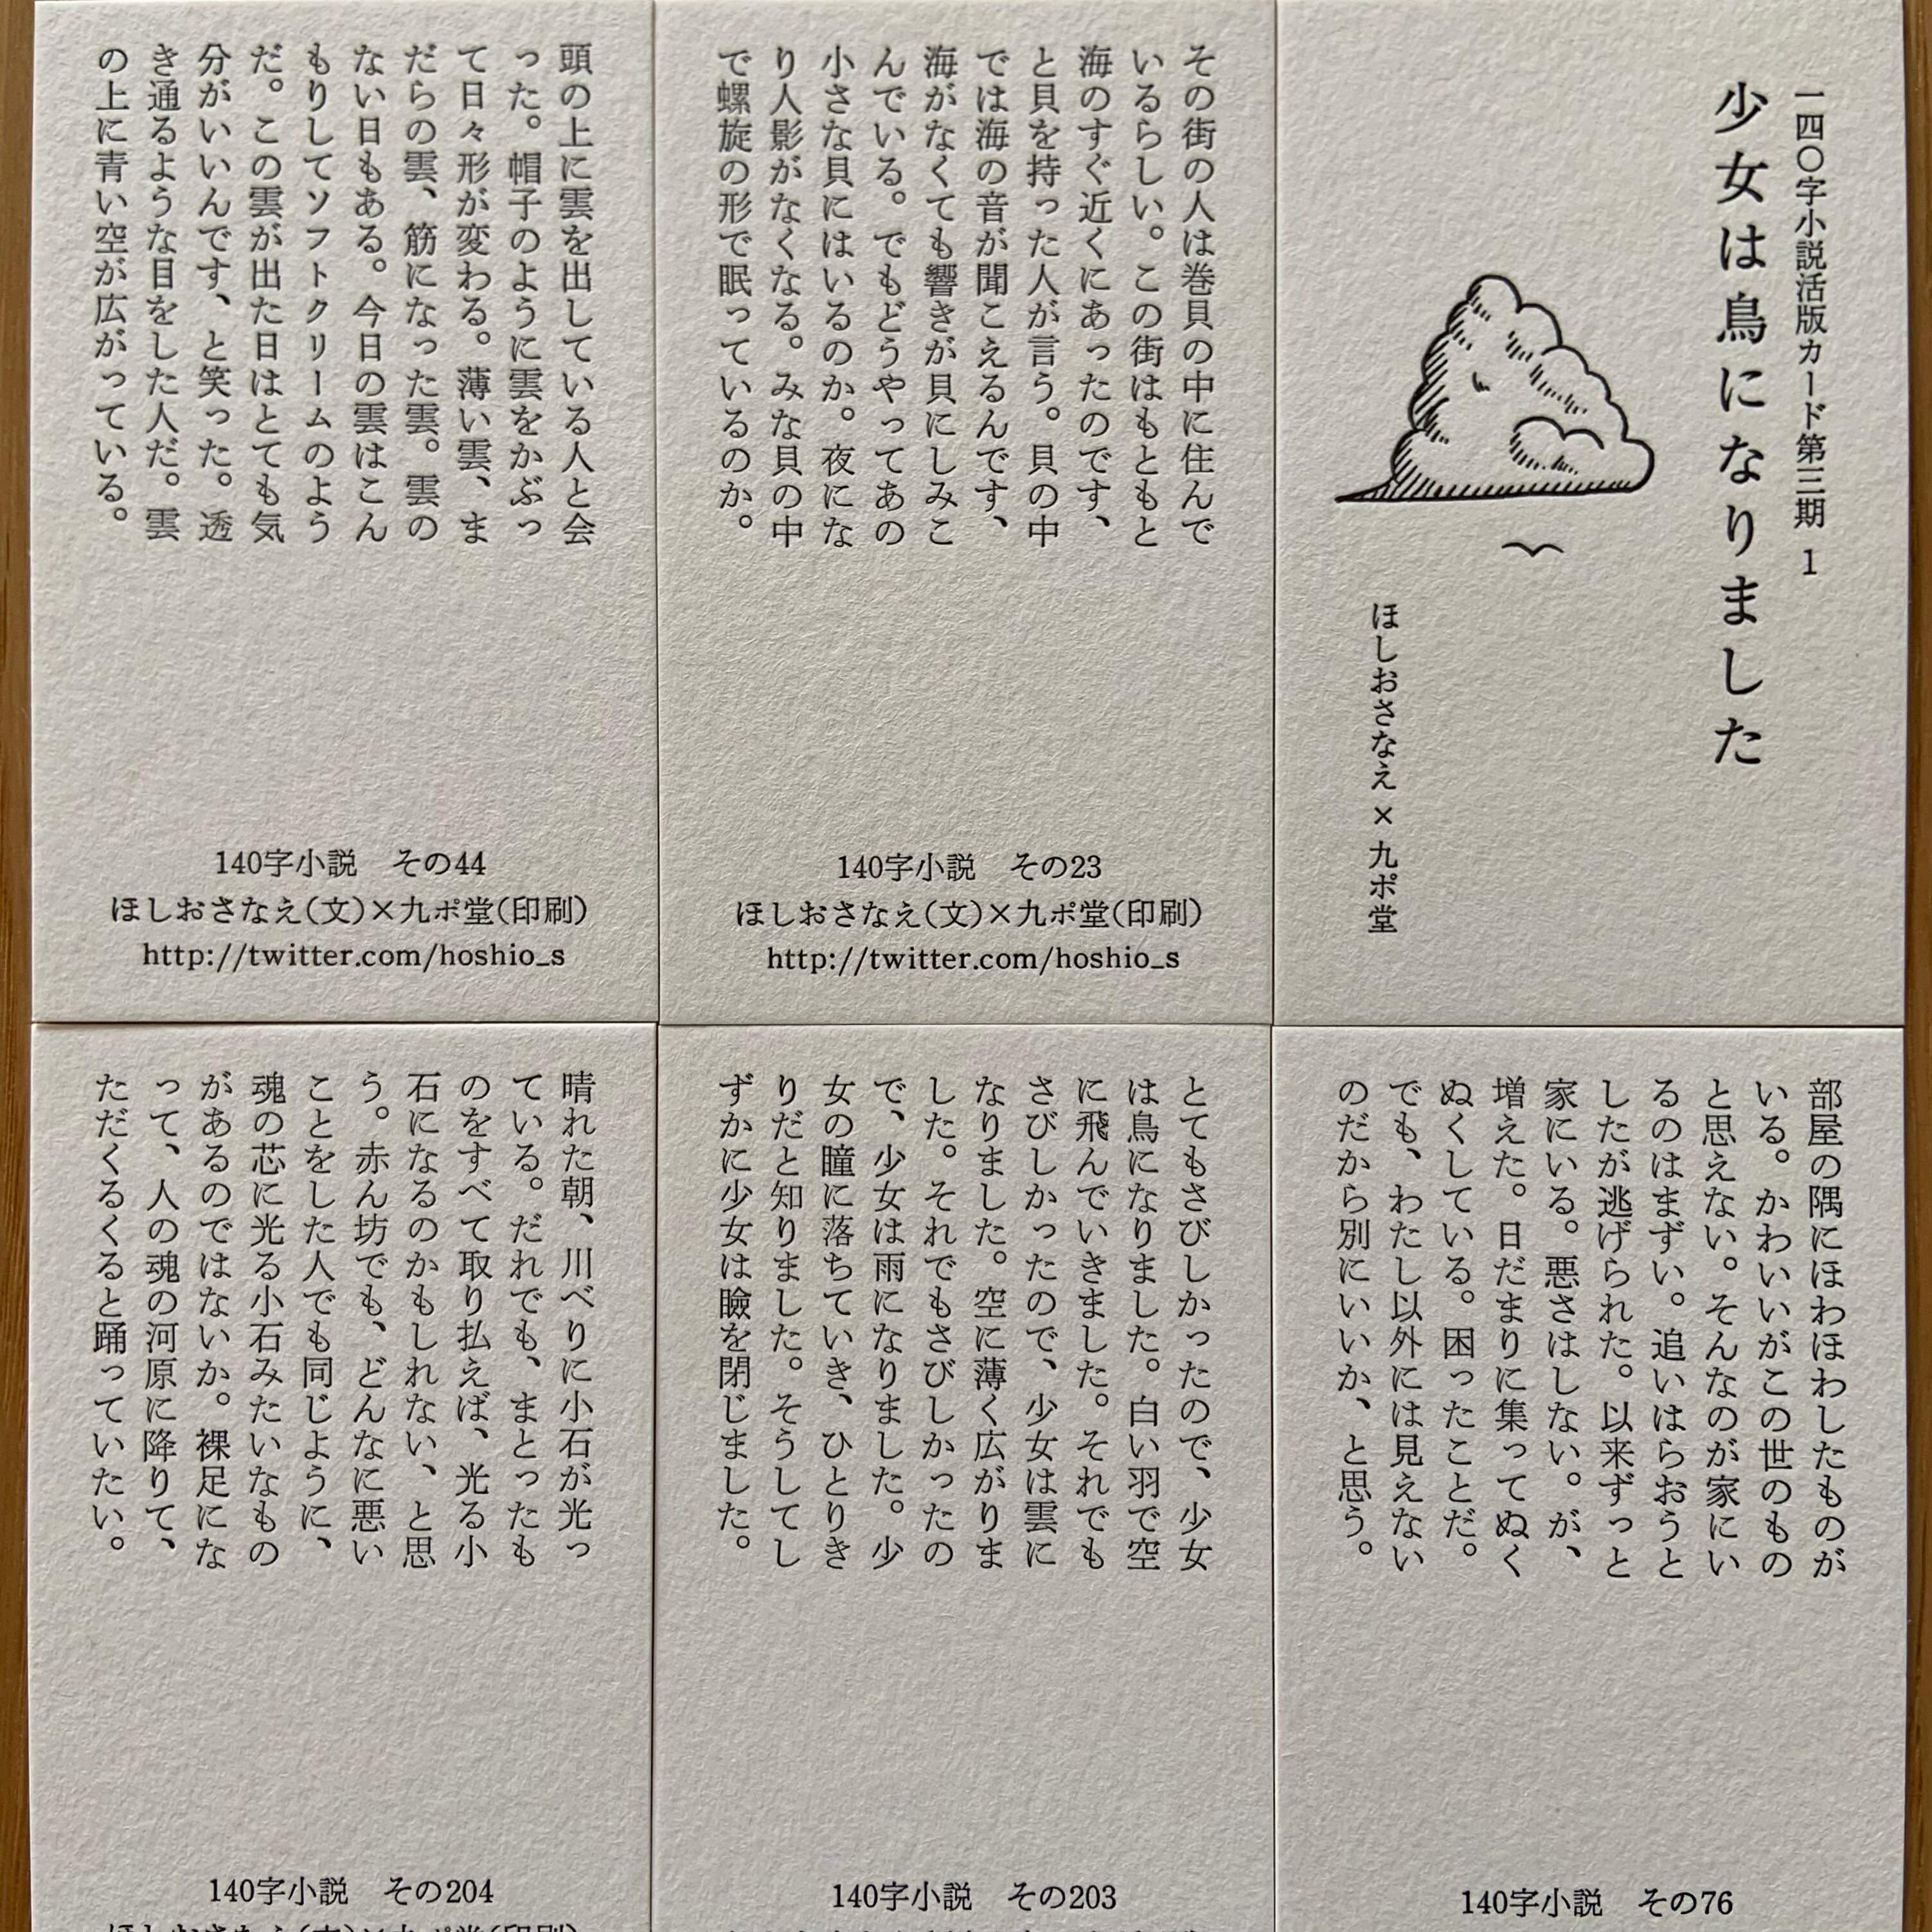 一四〇字小説活版カード第三期 1
少女は鳥になりました
ほしおさなえ × 九ポ堂
その街の人は巻貝の中に住んで
いるらしい。この街はもともと
海のすぐ近くにあったのです、
と貝を持った人が言う。貝の中
では海の音が聞こえるんです、
海がなくても響きが貝にしみこ
んでいる。でもどうやってあの
小さな貝にはいるのか。夜にな
り人影がなくなる。みな貝の中
で螺旋の形で眠っているのか。
140字小説 その23
ほしおさなえ(文)×九ポ堂(印刷)
http://twitter.com/hoshio_s
頭の上に雲を出している人と会
った。帽子のように雲をかぶっ
て日々形が変わる。薄い雲、ま
だらの雲、筋になった雲。雲の
ない日もある。今日の雲はこん
もりしてソフトクリームのよう
だ。この雲が出た日はとても気
分がいいんです、と笑った。透
き通るような目をした人だ。雲
の上に青い空が広がっている。
140字小説 その44
ほしおさなえ(文)×九ポ堂(印刷)
http://twitter.com/hoshio_s
部屋の隅にほわほわしたものが
いる。かわいいがこの世のもの
と思えない。そんなのが家にい
るのはまずい。追いはらおうと
したが逃げられた。以来ずっと
家にいる。悪さはしない。が、
増えた。日だまりに集ってぬく
ぬくしている。困ったことだ。
でも、わたし以外には見えない
のだから別にいいか、と思う。
140字小説 その76
とてもさびしかったので、少女
は鳥になりました。白い羽で空
に飛んでいきました。それでも
さびしかったので、少女は雲に
なりました。空に薄く広がりま
した。それでもさびしかったの
で、少女は雨になりました。少
女の瞳に落ちていき、ひとりき
りだと知りました。そうしてし
ずかに少女は瞼を閉じました。
140字小説 その203
晴れた朝、川べりに小石が光っ
ている。だれでも、まとったも
のをすべて取り払えば、光る小
石になるのかもしれない、と思
う。赤ん坊でも、どんなに悪い
ことをした人でも同じように、
魂の芯に光る小石みたいなもの
があるのではないか。裸足にな
って、人の魂の河原に降りて、
ただくるくると踊っていたい。
140字小説 その204